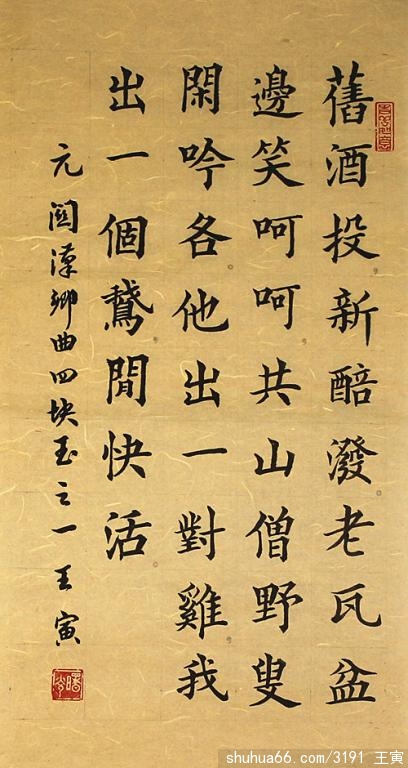 舊酒投新醅潑老瓦盆
邊笑呵呵共山僧野叟
閑吟各他出一對雞我
出一個鵝閒快活
元關漢卿曲四塊玉之一王寅
shuhua66.com/3191 王寅